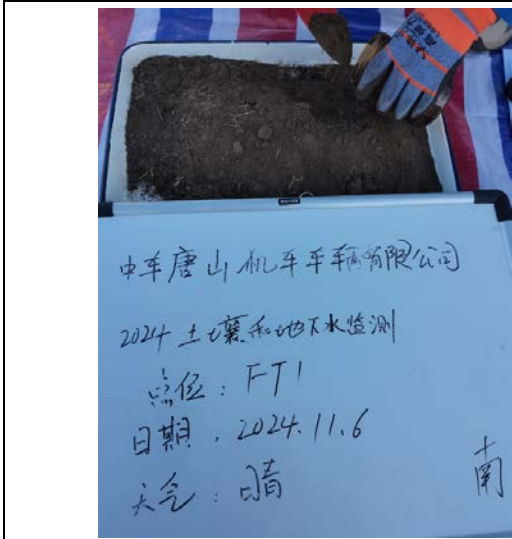 中车唐山机车车辆有限公司
2024 土壤和地下水监测
点位：FT1
日期．2024.11.6
天气：晴
南